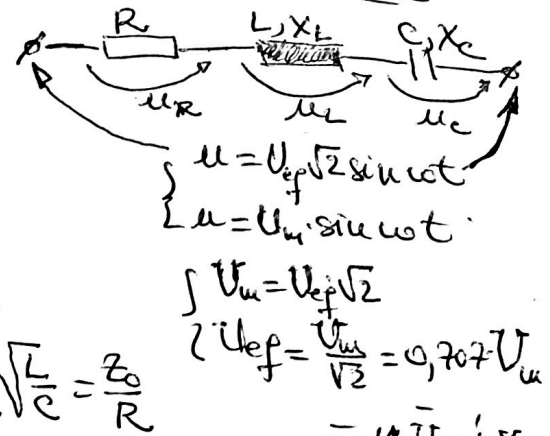 R L, X_L C, X_C
u_R u_L u_C
u = U_ef √2 sin ωt
u = U_m · sin ωt
U_m = U_ef √2
U_ef = U_m/√2 = 0,707 U_m
√(L/C) = Z_0/R